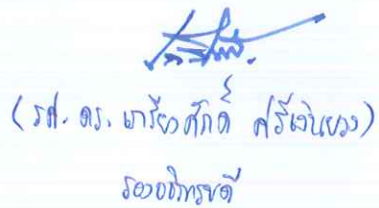 (รศ. ดร. เกรียงศักดิ์ ศรีเงินยวง)
รองอธิการบดี